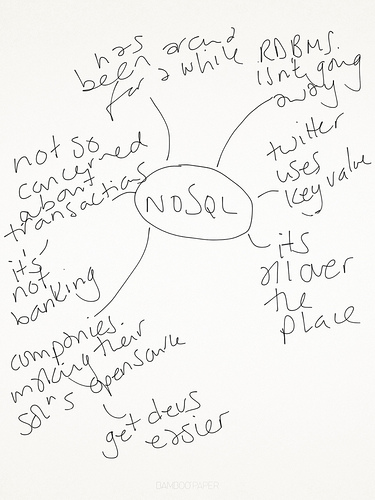 has
been around
for a while
RDBMS.
isn't going
away
twitter
uses
key value
its
all over
the
place
NOSQL
not so
concerned
about
transactions
it's
not
banking
companies.
making their
soln's opensource
get devs
easier
BAMBOO PAPER